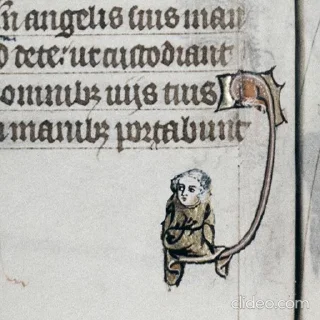 in angelis suis man
d dete: ut custodiant
omnibꝫ uijs tuis
manibꝫ portabunt
clideo.com